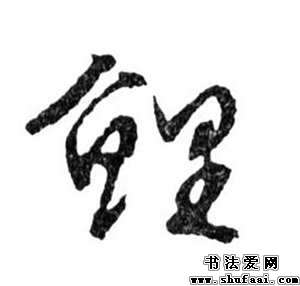 鲤
书法爱网
www.shufaai.com